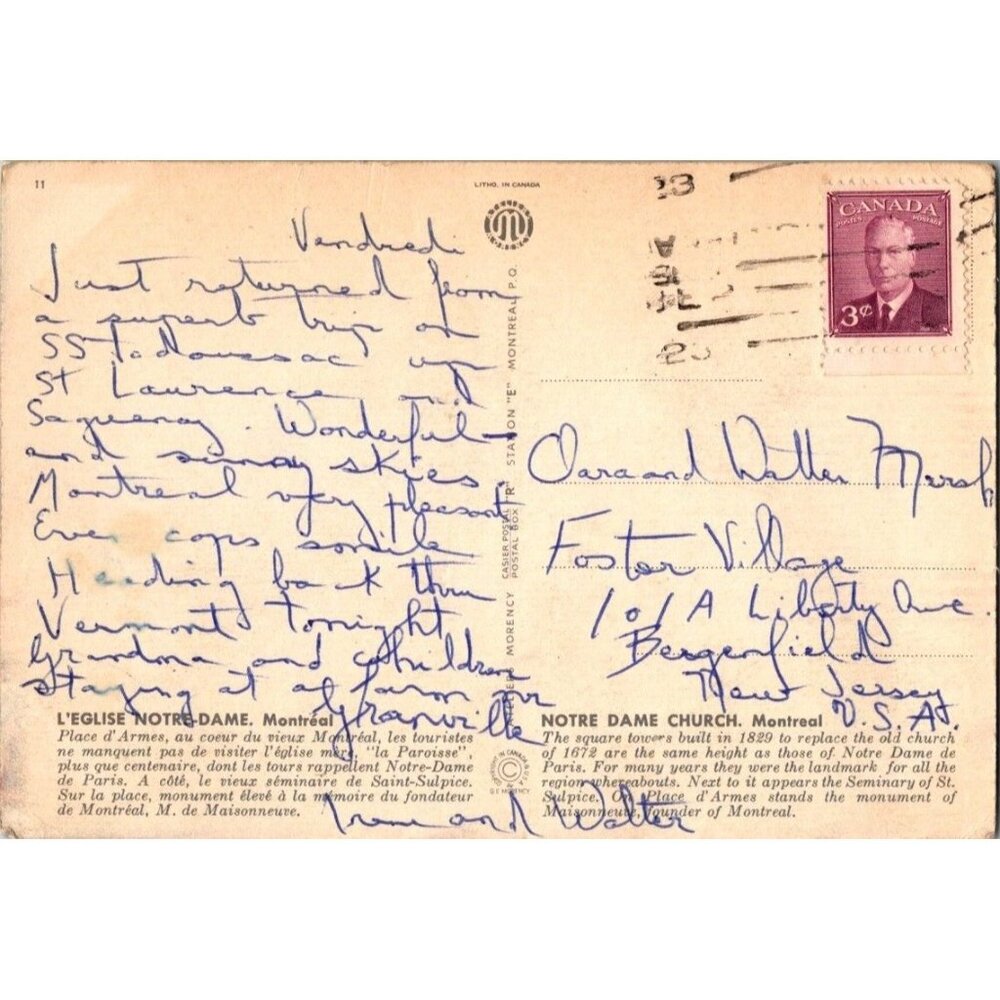 11
LITHO. IN CANADA
Vendredi
Just returned from
a superb trip on
SS Tadoussac up
St Laurence and
Saguenay. Wonderful
and sunny skies.
Montreal very pleasant
Even cops smile
Heading back thru
Vermont tonight
Grandma and children
staying at a farm nr
Granville
Irene and Walter
CANADA
POSTES POSTAGE
3¢
and Walter
Foster Village
101A Liberty Ave.
Bergenfield
New Jersey
U.S.A.
MORENCY CASIER POSTAL "R" STATION "E" MONTREAL, P.Q.
POSTAL BOX
L'EGLISE NOTRE-DAME. Montréal
Place d'Armes, au coeur du vieux Montréal, les touristes
ne manquent pas de visiter l'église mère, "la Paroisse",
plus que centenaire, dont les tours rappellent Notre-Dame
de Paris. A côté, le vieux séminaire de Saint-Sulpice.
Sur la place, monument élevé à la mémoire du fondateur
de Montréal, M. de Maisonneuve.
NOTRE DAME CHURCH. Montreal
The square towers built in 1829 to replace the old church
of 1672 are the same height as those of Notre Dame de
Paris. For many years they were the landmark for all the
region whereabouts. Next to it appears the Seminary of St.
Sulpice. On Place d'Armes stands the monument of
Maisonneuve, founder of Montreal.